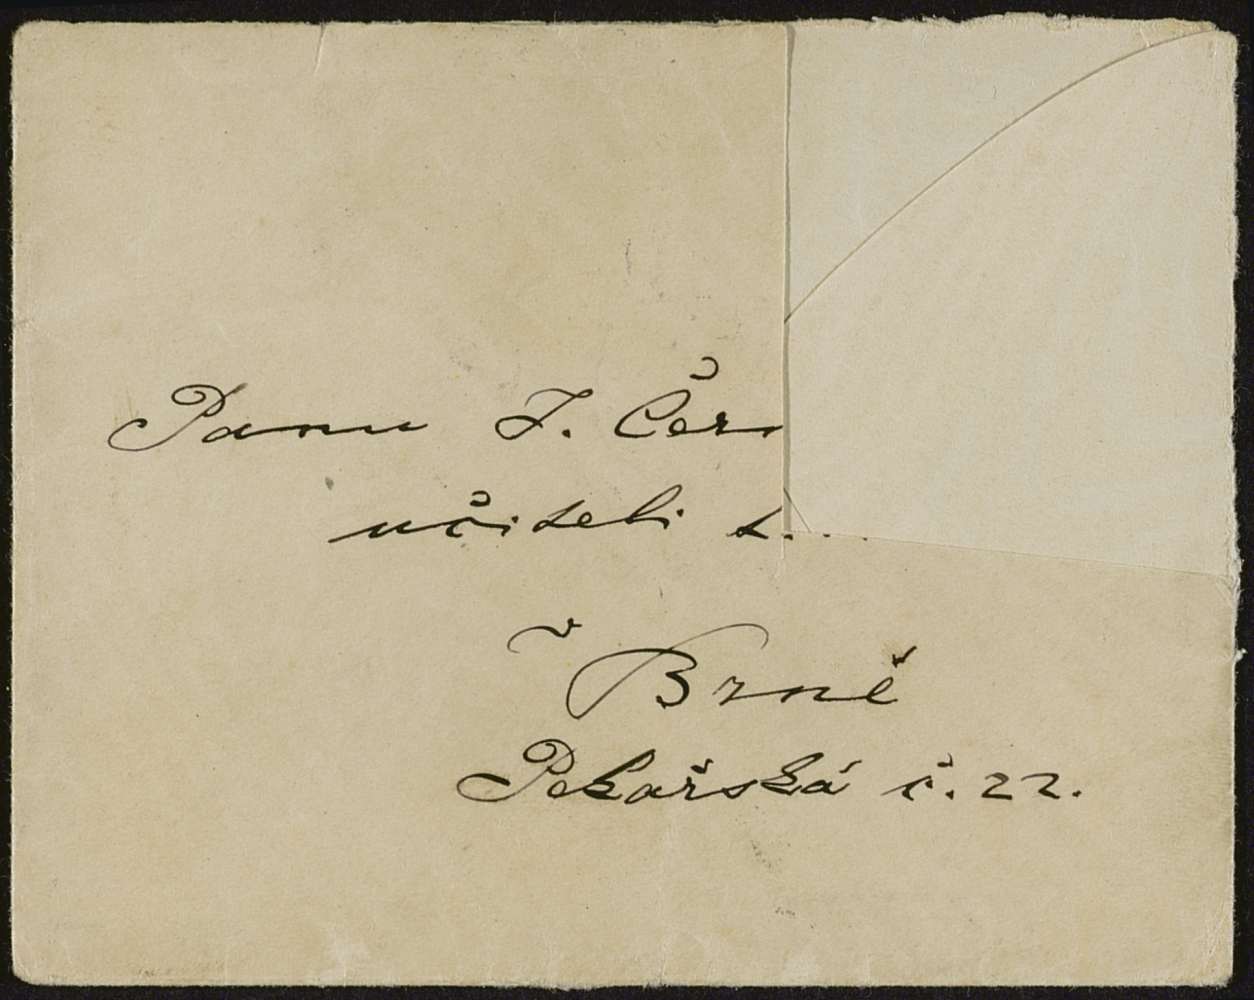 Panu J. Čer
učiteli
v Brně
Pekařská č. 22.